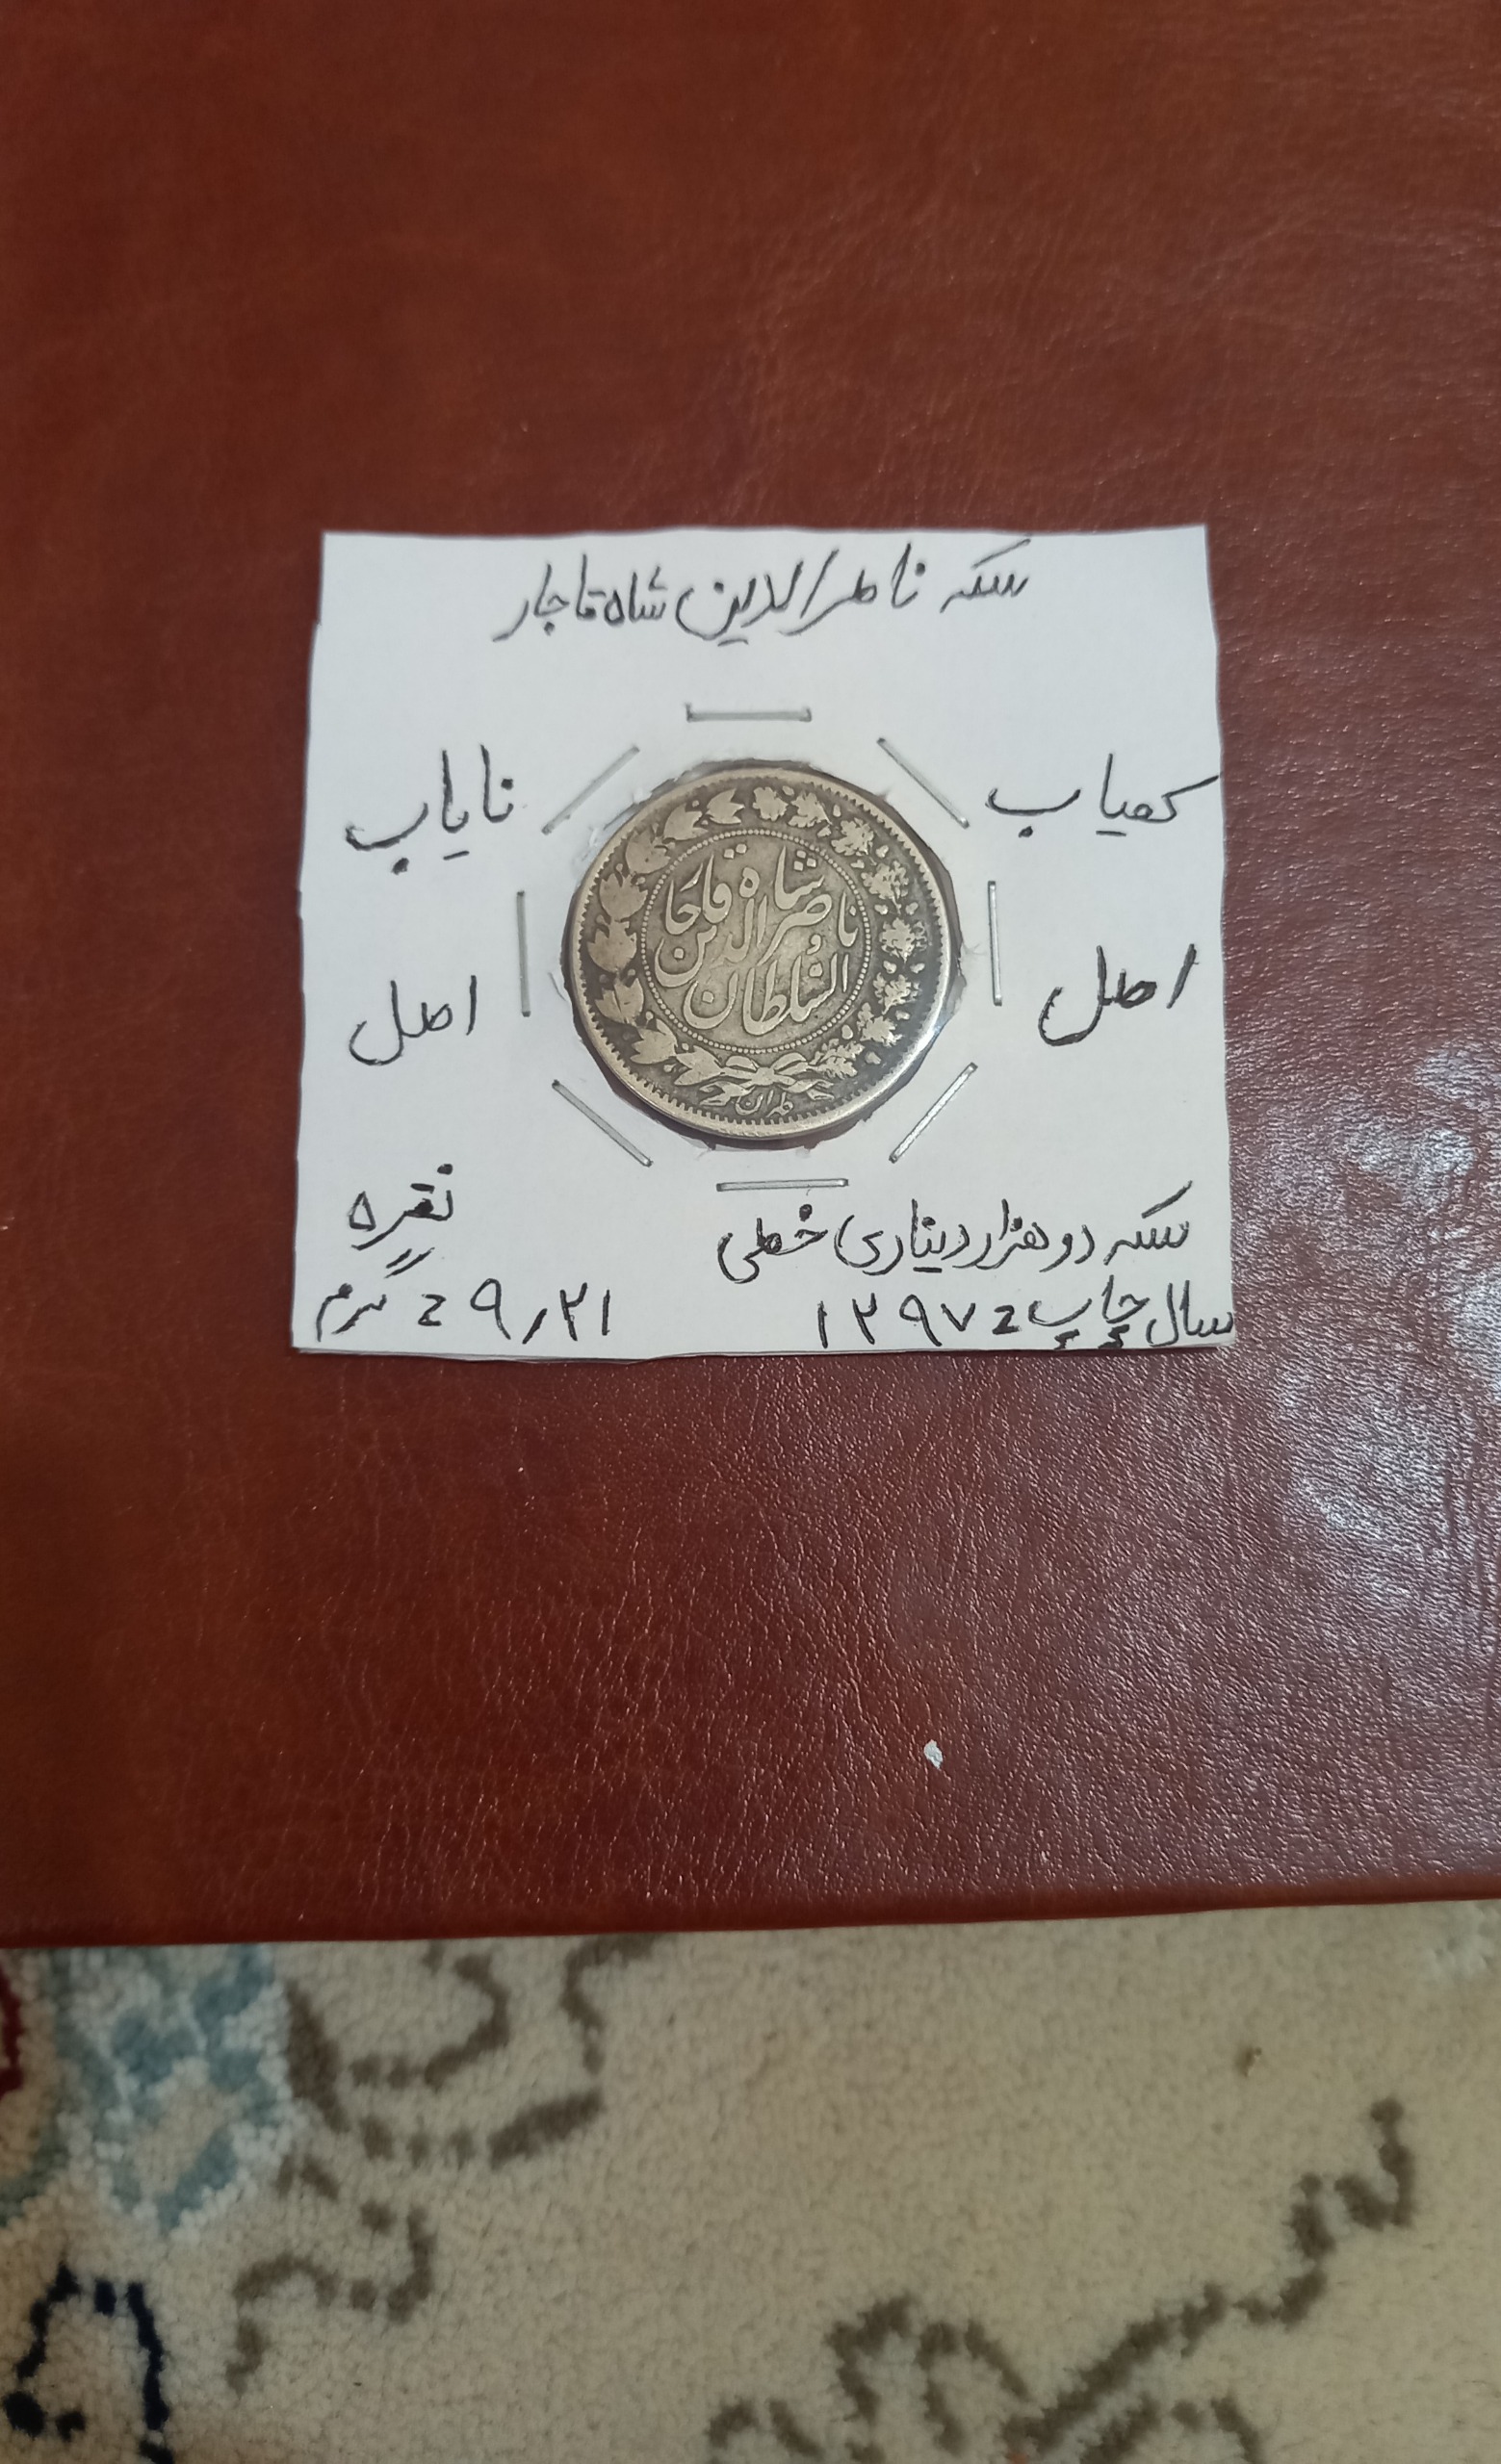 سکه ناصرالدین شاه قاجار
کمیاب
نایاب
شاه قاجار
ناصرالدین
السلطان
طهران
اصل
اصل
سکه دو هزار دیناری خطی
نقره
سال چاپ = ۱۲۹۷
۹٫۲۱ = گرم